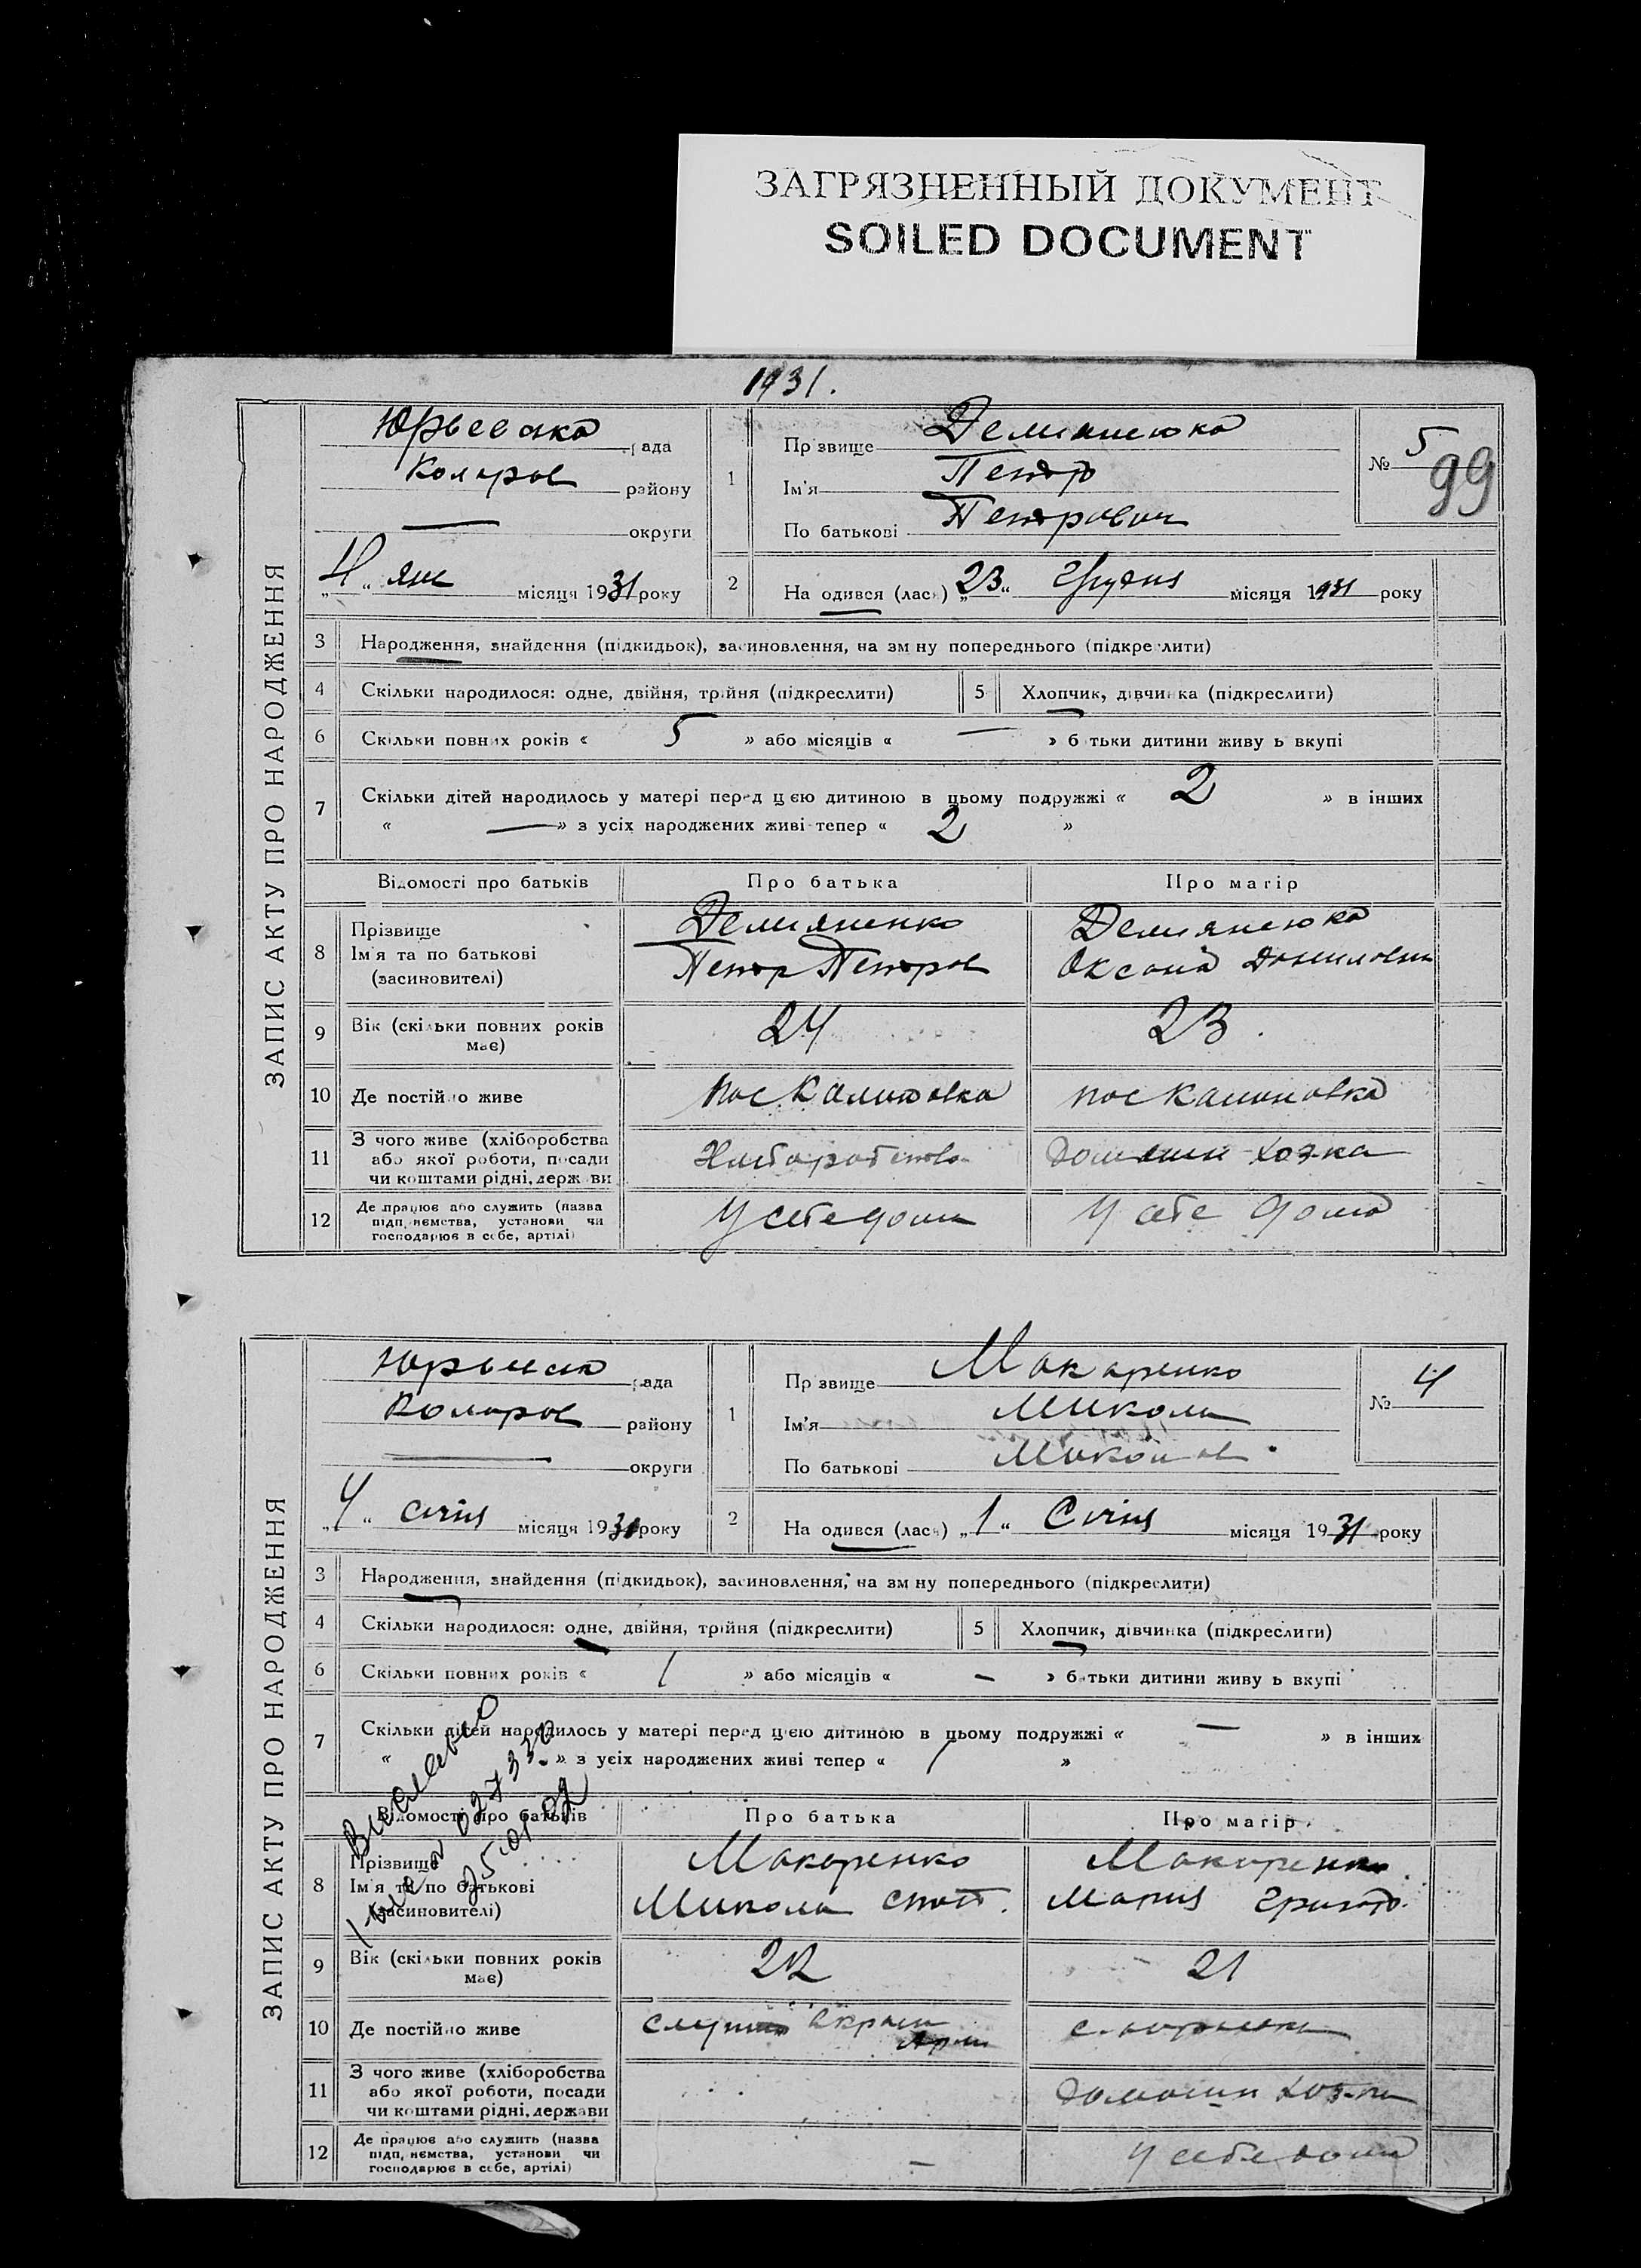 ЗАГРЯЗНЕННЫЙ ДОКУМЕНТ
SOILED DOCUMENT
1931.
ЗАПИС АКТУ ПРО НАРОДЖЕННЯ
рада
Коларов району
— округи
4 янв місяця 1931 року
1
Прізвище
Ім'я Петр
По батькові Петрович
№ 5
99
2 На одився (лась) „23“ Грудня місяця 1931 року
3 Народження, знайдення (підкидьок), засиновлення, на зм ну попереднього (підкреслити)
4 Скільки народилося: одне, двійня, трійня (підкреслити) 5 Хлопчик, дівчинка (підкреслити)
6 Скільки повних років « 5 » або місяців « — » б тьки дитини живу ь вкупі
7 Скільки дітей народилось у матері перед цією дитиною в цьому подружжі « 2 » в інших
« — » з усіх народжених живі тепер « 2 »
Відомості про батьків Про батька Про матір
8 Прізвище Демяненко
Ім'я та по батькові Петр Петров Оксана
(засиновителі)
9 Вік (скільки повних років має) 24 23.
10 Де постійно живе пос пос
11 З чого живе (хліборобства
або якої роботи, посади
чи коштами рідні, держави
12 Де працює або служить (назва У себе дома У себе дома
підприємства, установи чи
господарює в себе, артілі)
ЗАПИС АКТУ ПРО НАРОДЖЕННЯ
рада
Коларов району
— округи
„4“ січня місяця 1931 року
1
Прізвище Макаренко
Ім'я Микола
По батькові
№ 4
2 На одився (лась) „1“ Січня місяця 1931 року
3 Народження, знайдення (підкидьок), засиновлення, на зм ну попереднього (підкреслити)
4 Скільки народилося: одне, двійня, трійня (підкреслити) 5 Хлопчик, дівчинка (підкреслити)
6 Скільки повних років « 1 » або місяців « — » батьки дитини живу ь вкупі
7 Скільки дітей народилось у матері перед цією дитиною в цьому подружжі « — » в інших
« » з усіх народжених живі тепер « 1 »
Відомості про батьків Про батька Про матір
8 Прізвище Макаренко Макаренко
Ім'я та по батькові Микола Мария
(засиновителі)
9 Вік (скільки повних років має) 22 21
10 Де постійно живе
11 З чого живе (хліборобства
або якої роботи, посади
чи коштами рідні, держави
12 Де працює або служить (назва — У себе дома
підприємства, установи чи
господарює в себе, артілі)